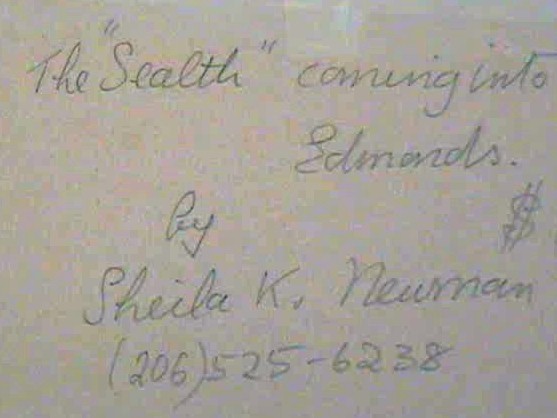 The "Sealth" coming into
Edmonds.
by
$
Sheila K. Newman
(206)525-6238